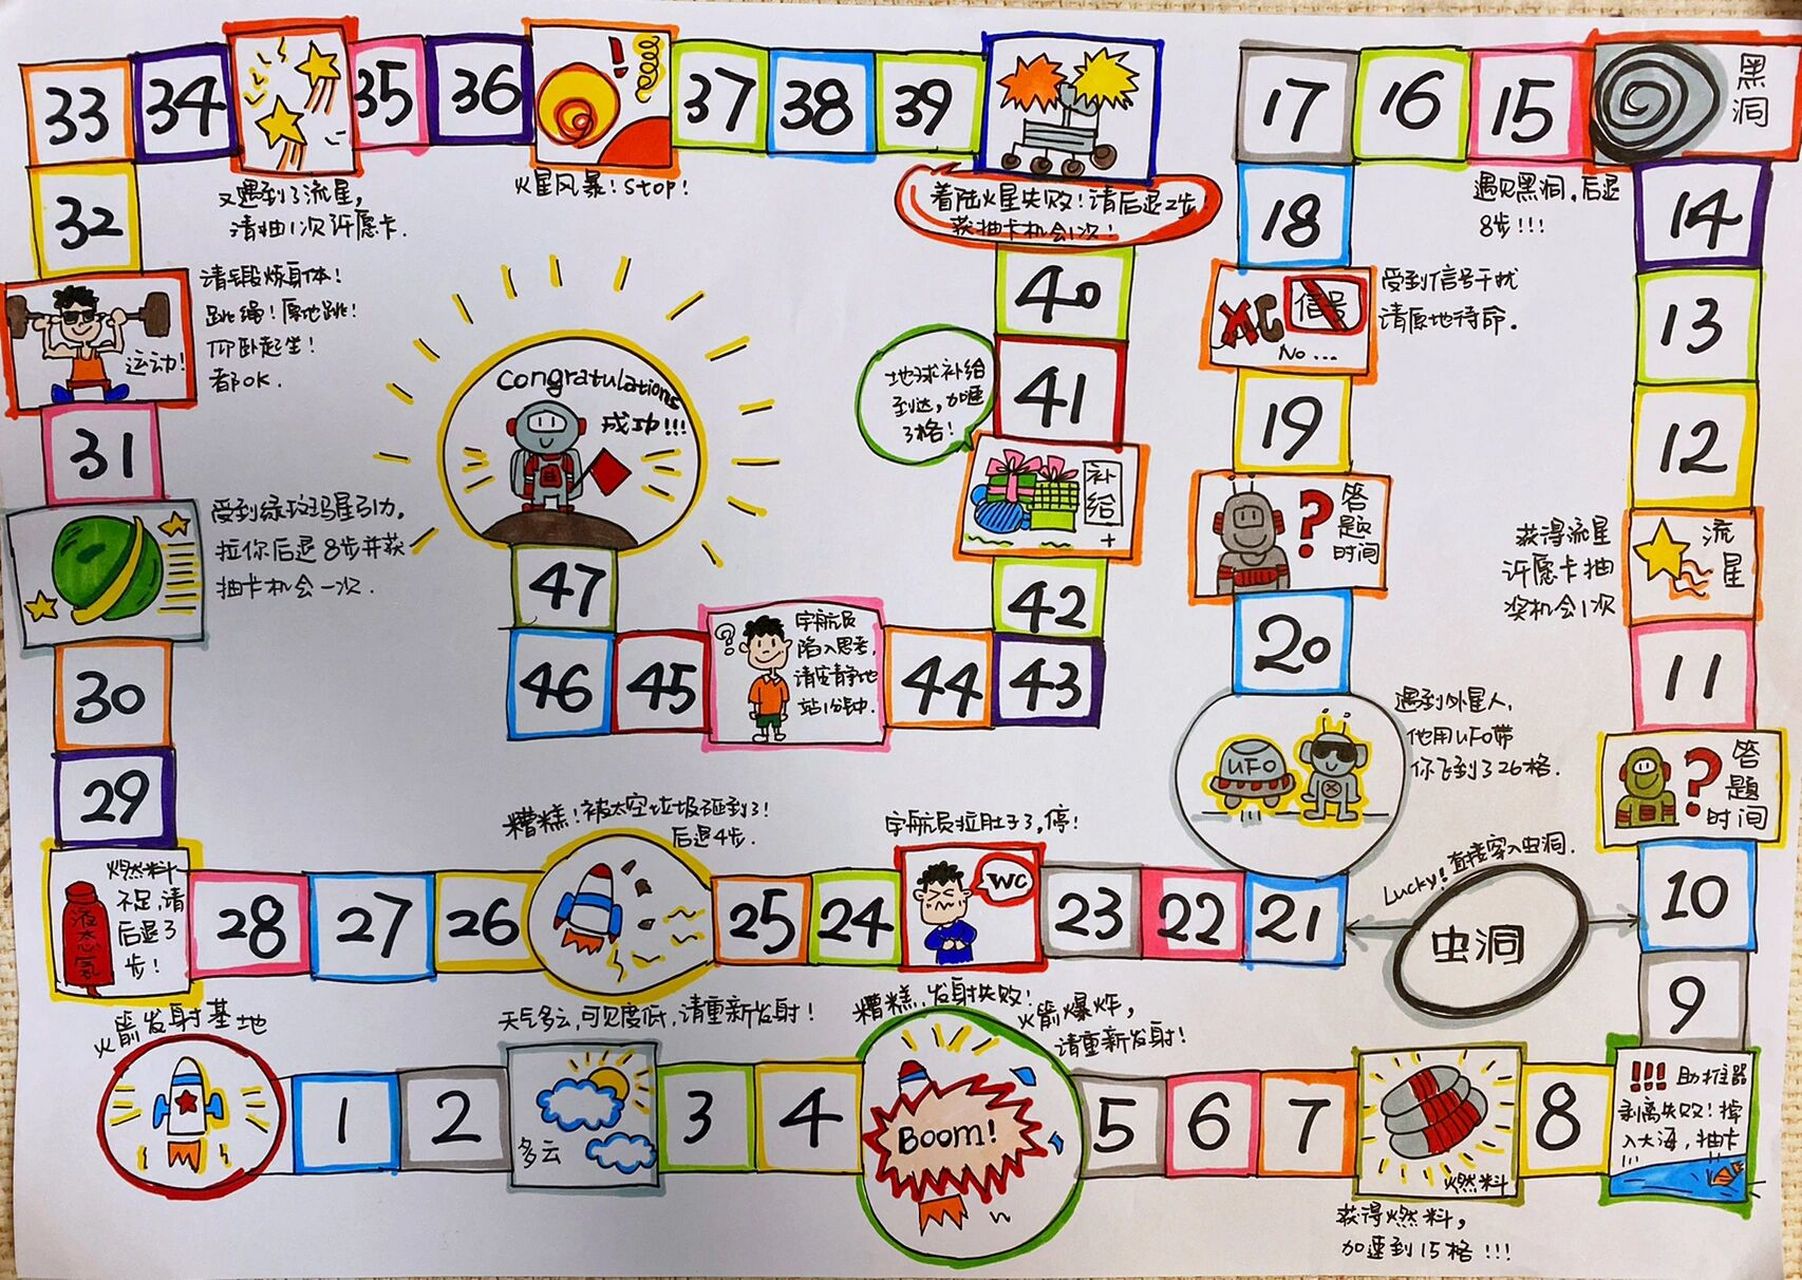 33
34
35
36
37
38
39
17
16
15
黑
洞
又遇到了流星，
请抽1次许愿卡.
火星风暴! Stop!
着陆火星失败!请后退2步
获抽卡机会1次!
遇见黑洞,后退
8步!!!
32
18
14
请锻炼身体!
跳绳!原地跳!
仰卧起坐!
都OK.
运动!
40
信号
No...
受到信号干扰
请原地待命.
13
31
Congratulations
成功!!!
地球补给
到达,加速
3格!
41
19
12
受到绿斑玛星引力,
拉你后退8步并获
抽卡机会一次.
补
给
+
?
答
题
时间
获得流星
许愿卡抽
奖机会1次
流
星
47
42
20
11
30
46
45
?
宇航员
陷入思考,
请安静地
站1分钟.
44
43
29
UFO
遇到外星人,
他用UFO带
你飞到了26格.
?
答
题
时间
糟糕!被太空垃圾砸到了!
后退4步.
宇航员拉肚子了,停!
燃料
不足,请
后退3
步!
液态氢
28
27
26
25
24
WC
23
22
21
Lucky! 直接穿入虫洞.
虫洞
10
9
火箭发射基地
天气多云,可见度低,请重新发射!
糟糕,发射失败!
火箭爆炸,
请重新发射!
1
2
多云
3
4
Boom!
5
6
7
燃料
8
!!! 助推器
剥离失败!掉
入大海,抽卡
!!!
获得燃料,
加速到15格!!!